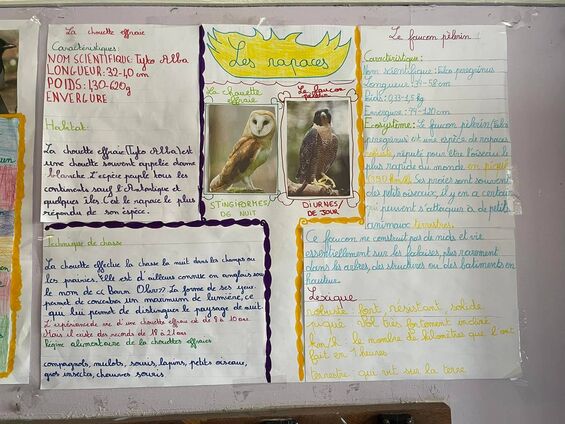 La chouette effraie
Caractéristiques:
NOM SCIENTIFIQUE: Tyto Alba
LONGUEUR: 32-40 cm
POIDS: 130-620g
ENVERGURE
Habitat:
La chouette effraie (Tyto Alba) est
une chouette souvent appelée dame
blanche. L'espèce peuple tous les
continents sauf l'Antarctique et
quelques îles. C'est le rapace le plus
répandu de son espèce.
Technique de chasse
La chouette effectue la chasse la nuit dans les champs ou
les prairies. Elle est d'ailleurs connue en anglais sous
le nom de << Barn >> La forme de ses yeux
permet de concentrer un maximum de lumière, ce
qui lui permet de distinguer le paysage de nuit.
L'espérance de vie d'une chouette effraie est de 8 à 10 ans
Mais il existe des records de 18 à 21 ans
Régime alimentaire de la chouettes effraies
campagnols, mulots, souris, lapins, petits oiseaux,
gros insectes, chauves souris
Les rapaces
La chouette
effraie
Le faucon
pèlerin
STRIGIFORMES
DE NUIT
DIURNES/
DE JOUR
Le faucon pèlerin
Caractéristique:
Nom scientifique: Falco peregrinus
Longueur: 34-58 cm
Poids: 0,33-1,5 kg
Envergure: 74-120 cm
Écosystème: Le faucon pèlerin (Falco
peregrinus) est une espèce de rapaces
robuste, réputé pour être l'oiseau le
plus rapide du monde en piqué
Ses proies sont souvent
des petits oiseaux, il y en a certains
qui peuvent s'attaquer à de petits
animaux terrestres.
Ce faucon ne construit pas de nids et vis
essentiellement sur les falaises, plus rarement
dans les arbres, des structures ou des bâtiments en
hauteur.
Lexique
robuste fort, résistant, solide
piqué vol très fortement incliné
km/h le nombre de kilomètres que l'ont
fait en 1 heures
terrestre qui vit sur la terre